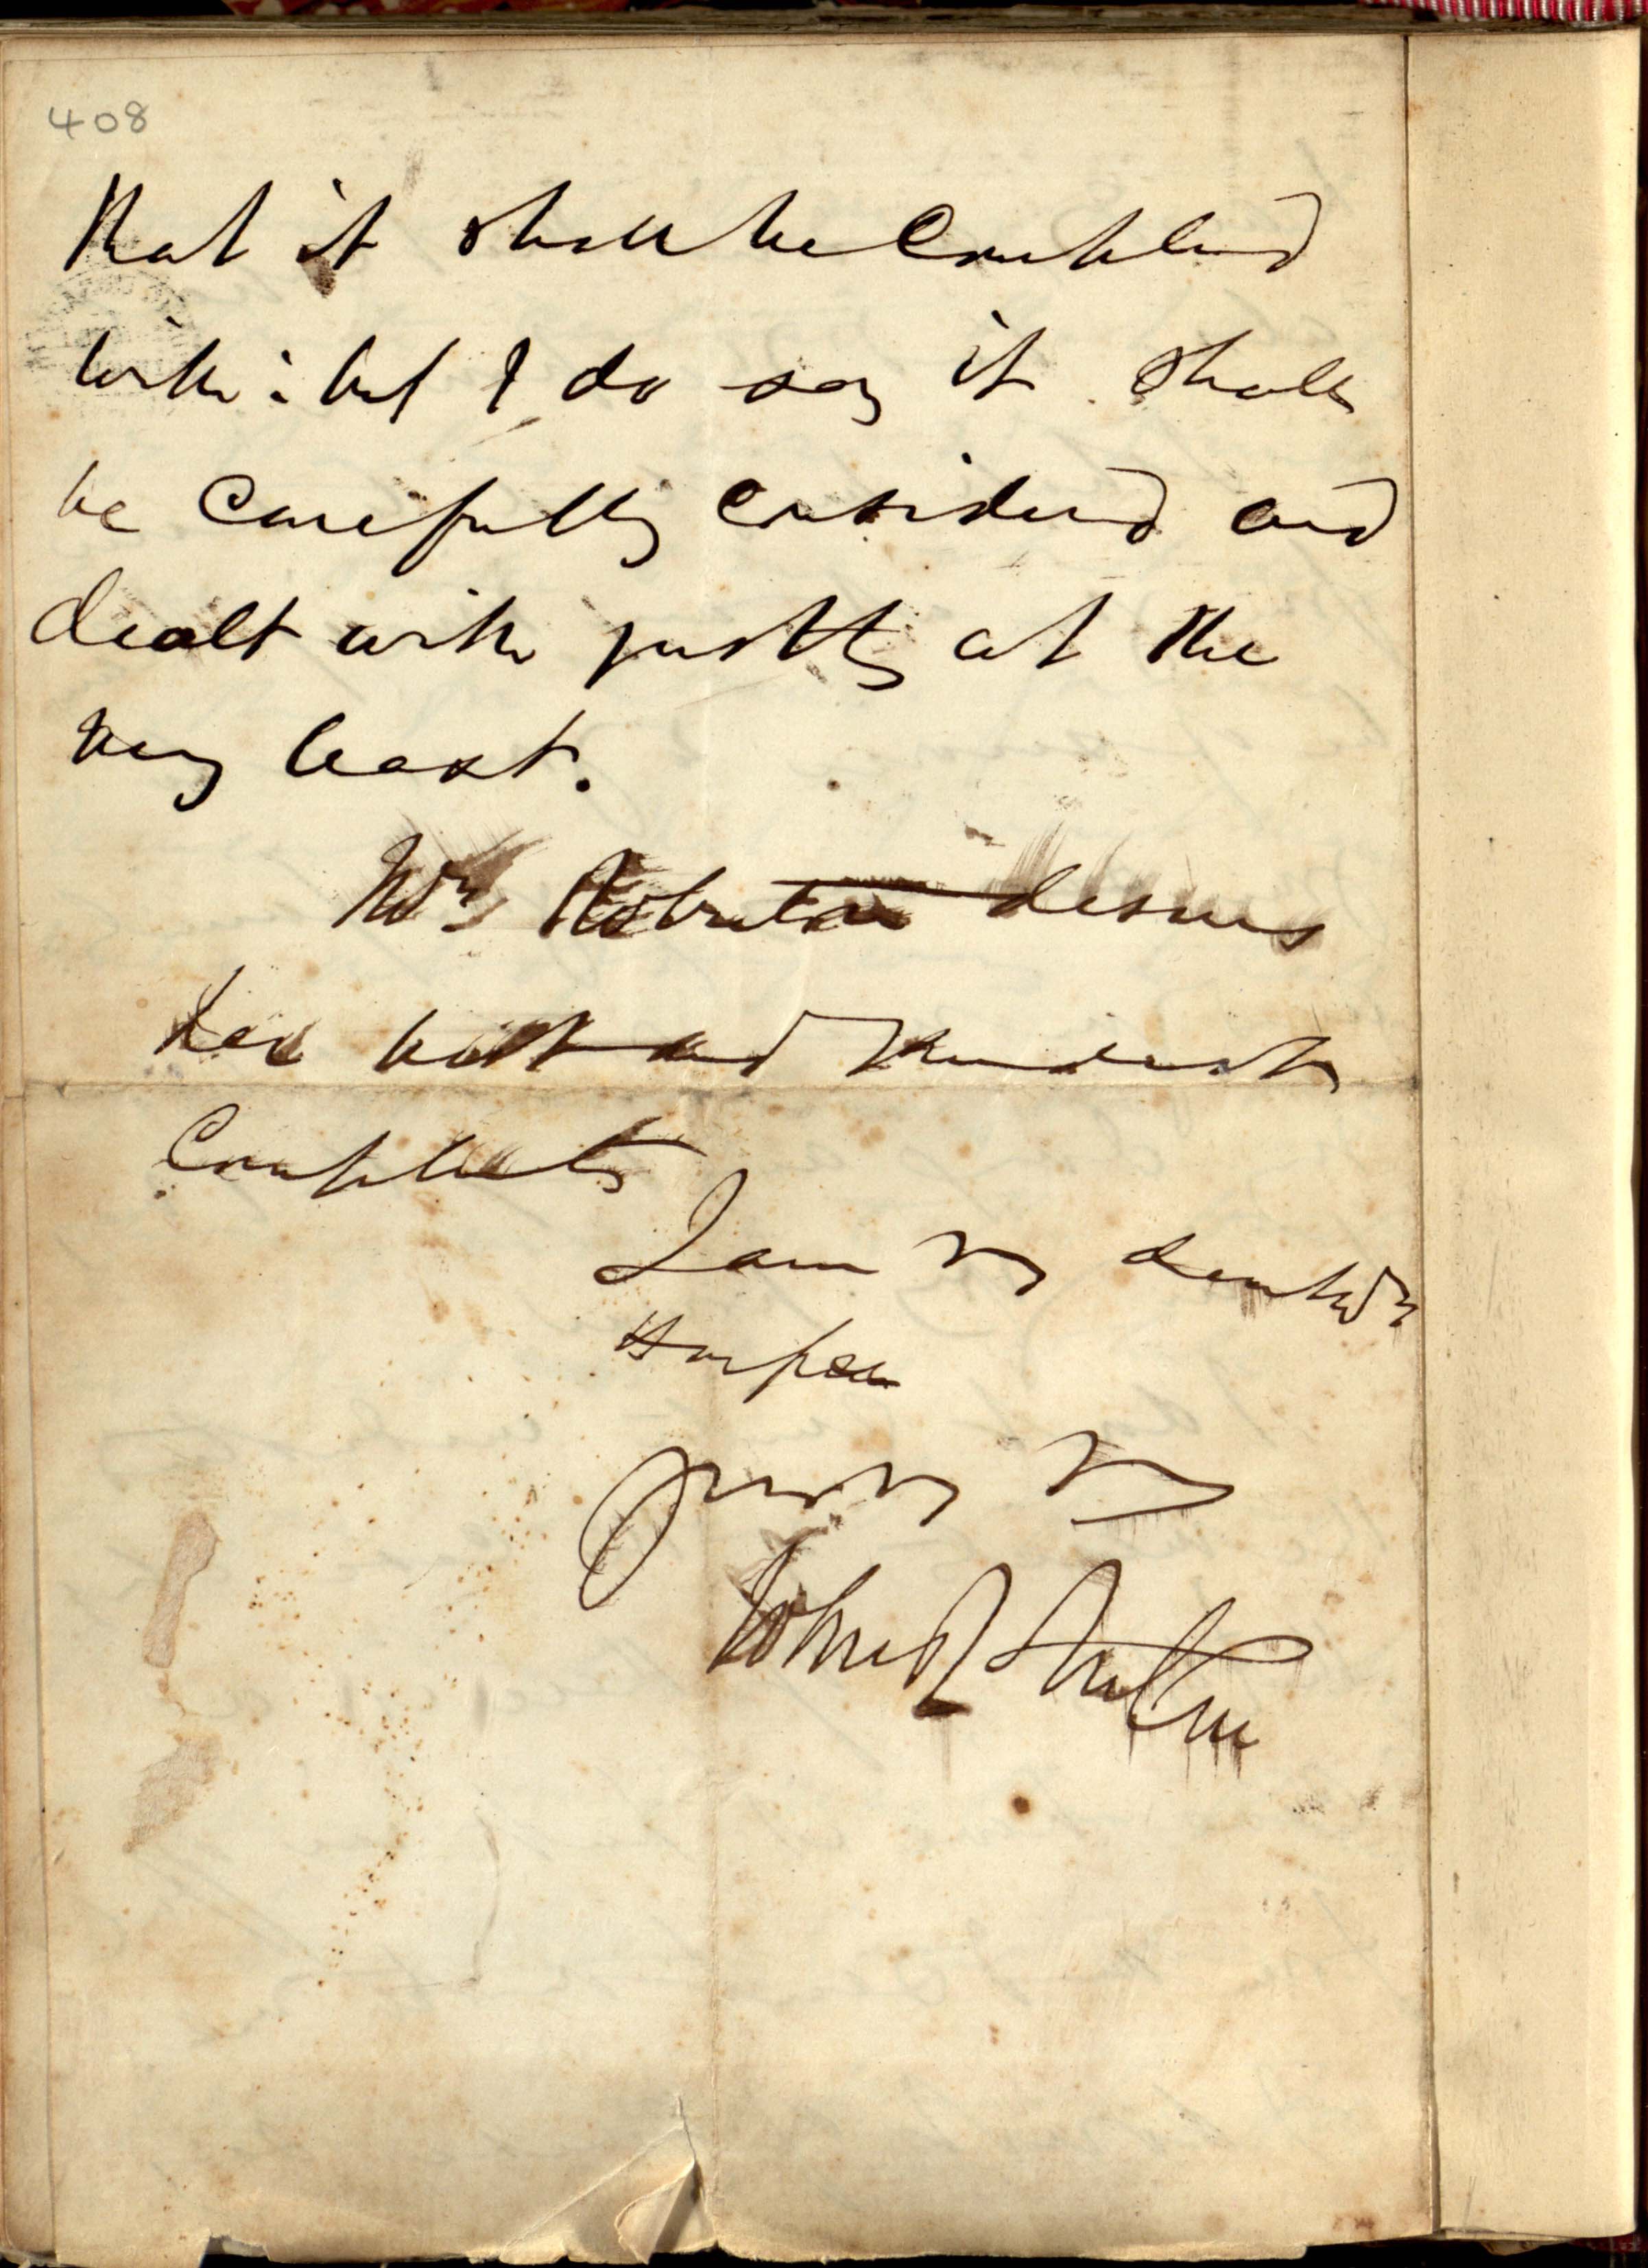 408
that it shall be complied
with: but I do say it shall
be carefully considered and
dealt with justly at the
very least.
Mrs Robertson desires
her best and kindest
Compliments
I am my dear
yours very
John